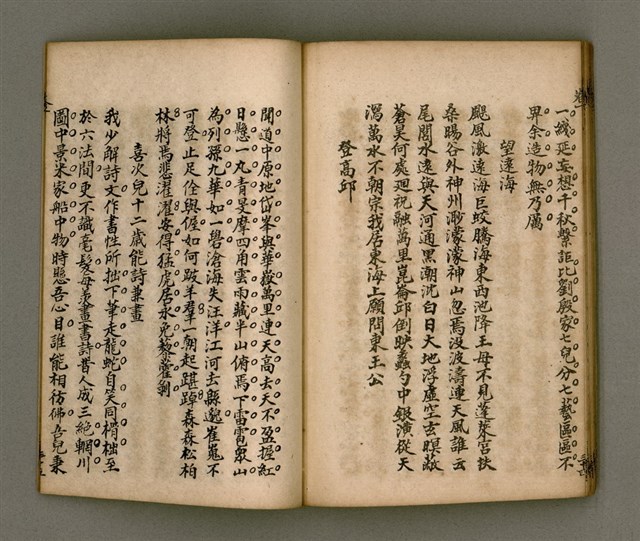 一綫延妄想千秋繫詎比劉殷家七兒分七藝區區不
畀余造物無乃厲
望遠海
颶風激遠海巨蛟騰海東西池降王母不見蓬萊宮扶
桑暘谷外神州渺濛濛神山忽焉沒波濤連天風誰云
尾閭水遠與天河通黑潮沈白日大地浮虛空玄瞑蔽
蒼昊何處廻祝融萬里崑崙邱倒映蠡勺中銀潢從天
瀉萬水不朝宗我居東海上願問東王公
登高邱
聞道中原地岱峯與華嶽萬里連天高去天不盈握紅
日懸一丸青旻摩四角雲雨藏半山俯焉下雷雹眾山
為列孫九華如一礐滄海失汪洋江河去縣邈崔嵬不
可登止足佺與偓如何跂羊羣一朝起踸踔森森松柏
林將焉悲濯濯安得猛虎居永免藜藿剝
喜次兒十二歲能詩兼畫
我少解詩文作書性所拙下筆走龍蛇自笑同樗櫟至
於六法間更不識毫髮每羨畫書詩昔人成三絕輞川
圖中景米家船中物時懸吾心目誰能相彷彿吾兒秉